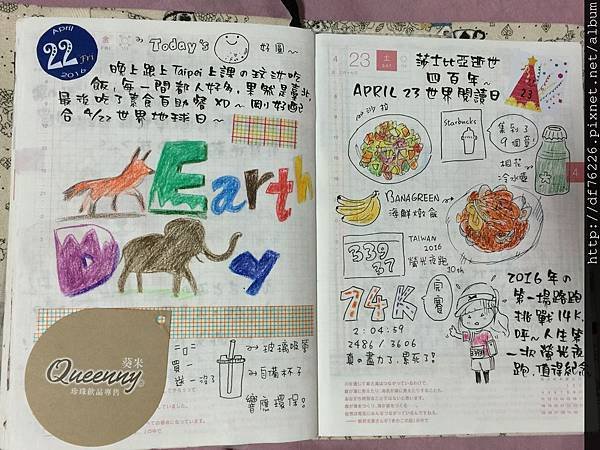 April
22 Fri
2016
金
FRI
Today's 好圓~
晚上跟上Taipei上課の玟洪吃
飯,每一間都人好多,果然是臺北,
最後吃了素食百匯餐XD~剛好配
合4/22世界地球日~
Earth
Day
葵米
Queenny
珍珠飲品專售
買一
送一
玻璃吸管
自備杯子
響應環保
4 23 土
SAT
莎士比亞逝世
四百年~
APRIL 23 世界閱讀日
23
沙拉
Starbucks
集到了
9個章!
桃花
冷水壺
4
BANAGREEN
海鮮燉飯
339
37
TAIWAN
2016
螢光夜跑
10th
14K
完賽
2:04:59
2486 / 3606
真の盡力了,累死了!
2016年の
第一場路跑
挑戰14K.
呼~人生第
一次螢光夜
跑,頂得紀念
http://df76226.pixnet.net/album